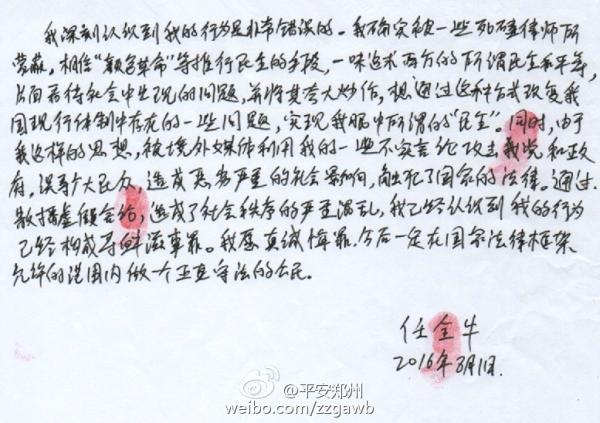 我深刻认识到我的行为是非常错误的。我确实被一些死磕律师所
蒙蔽，相信“颜色革命”等推行民主的手段，一味追求西方的所谓民主和平等，
片面看待社会中出现的问题，并将其夸大炒作，想通过这种方式改变我
国现行体制中存在的一些问题，实现我眼中所谓的“民主”。同时，由于
我这样的思想，被境外媒体利用我的一些不实言论攻击我党和政
府，误导广大民众，造成恶劣严重的社会影响，触犯了国家的法律。通过
散播虚假言论，造成了社会秩序的严重混乱，我已经认识到我的行为
已经构成寻衅滋事罪。我愿真诚悔罪，今后一定在国家法律框架
允许的范围内做个正直守法的公民。
任全牛
2016年8月1日.
@平安郑州
weibo.com/zzgawb